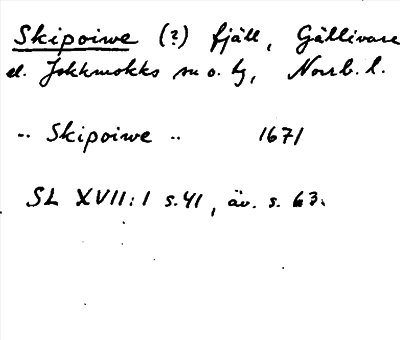 Skipoiwe (?) fjäll, Gällivare
el. Jokkmokks sn o. tg, Norrb. l.
.. Skipoiwe .. 1671
SL XVII:1 s.41, äv. s. 63.